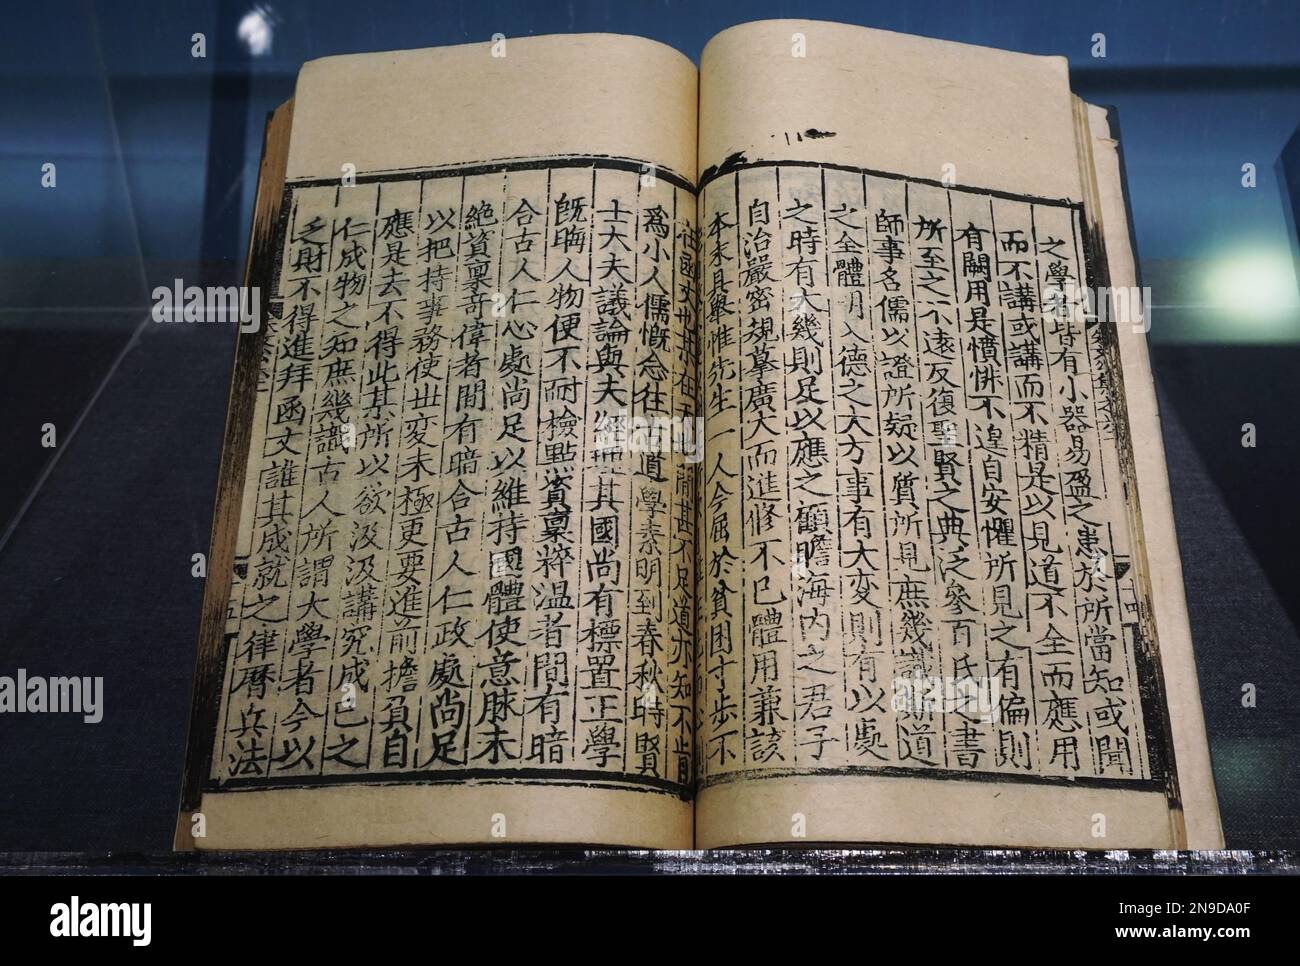 之學者皆有小器易盈之患於所當知或聞
而不講或講而不精是以見道不全而應用
有闕用是憤悱不遑自安懼所見之有偏則
所至之不遠反復聖賢之典泛參百氏之書
師事名儒以證所疑以質所見庶幾識斯道
之全體明入德之大方事有大変則有以處
之時有大幾則足以應之顧瞻海内之君子
自治嚴密規摹廣大而進修不已體用兼該
本末具舉惟先生一人今屈於貧困寸步不
世間甚不足道亦知不
為小人儒慨念往古道學素明到春秋時賢
士大夫議論與夫經理其國尚有標置正學
旣晦人物便不耐檢點資稟粹溫者間有暗
合古人仁心處尚足以維持國體使意脉未
絶資稟奇偉者間有暗合古人仁政處尚足
以把持事務使丗変未極更要進前擔負自
應是去不得此某所以欲汲汲講究成已之
仁成物之知庶幾識古人所謂大學者今以
乏財不得進拜函文誰其成就之律曆兵法
五
alamy
Image ID: 2N9DA0F
www.alamy.com